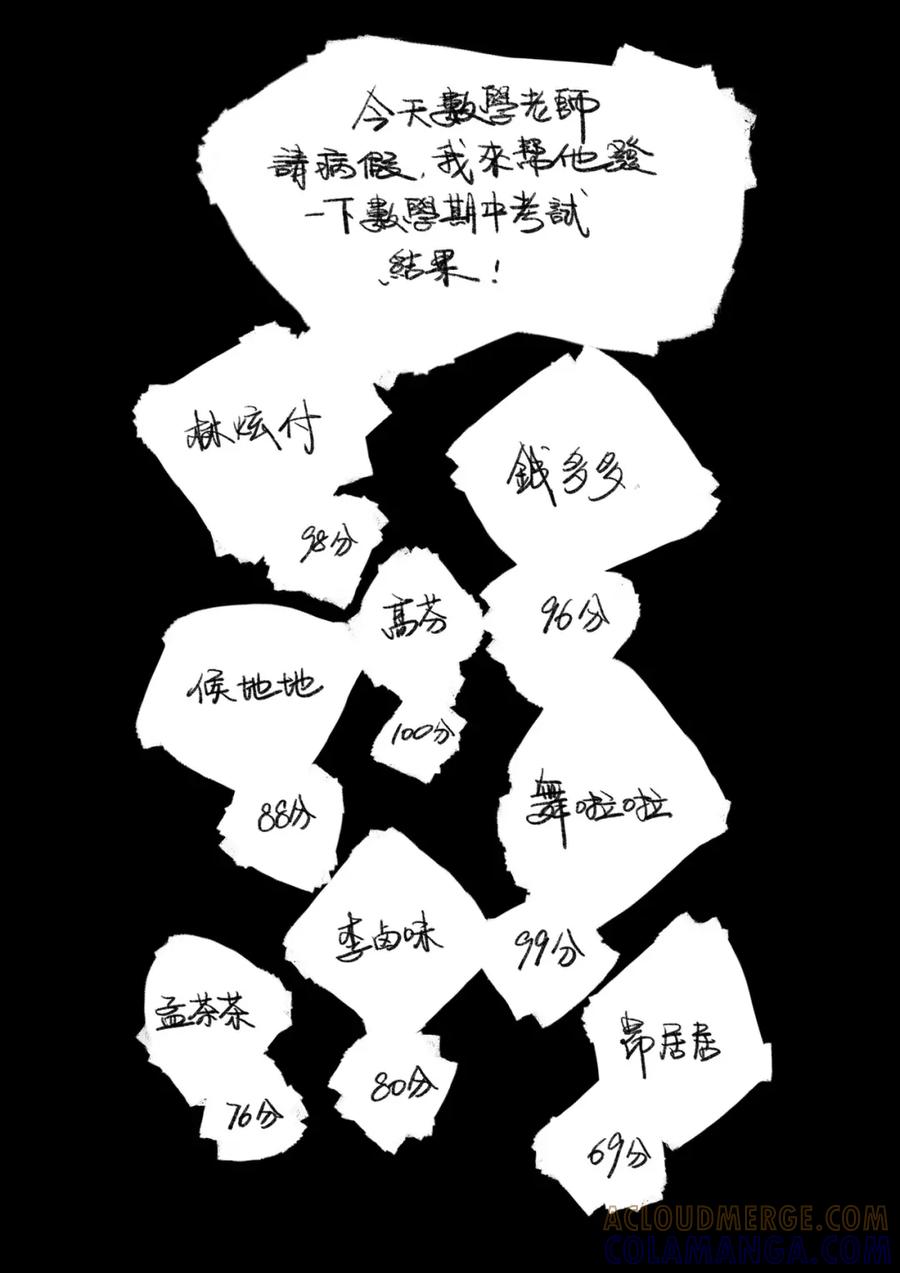 今天數學老師
請病假,我來幫他發
一下數學期中考試
結果!
林炫付
98分
錢多多
96分
高芬
100分
候地地
88分
舞啦啦
99分
李卤味
80分
孟茶茶
76分
昂居居
69分
ACLOUDMERGE.COM
COLAMANGA.COM